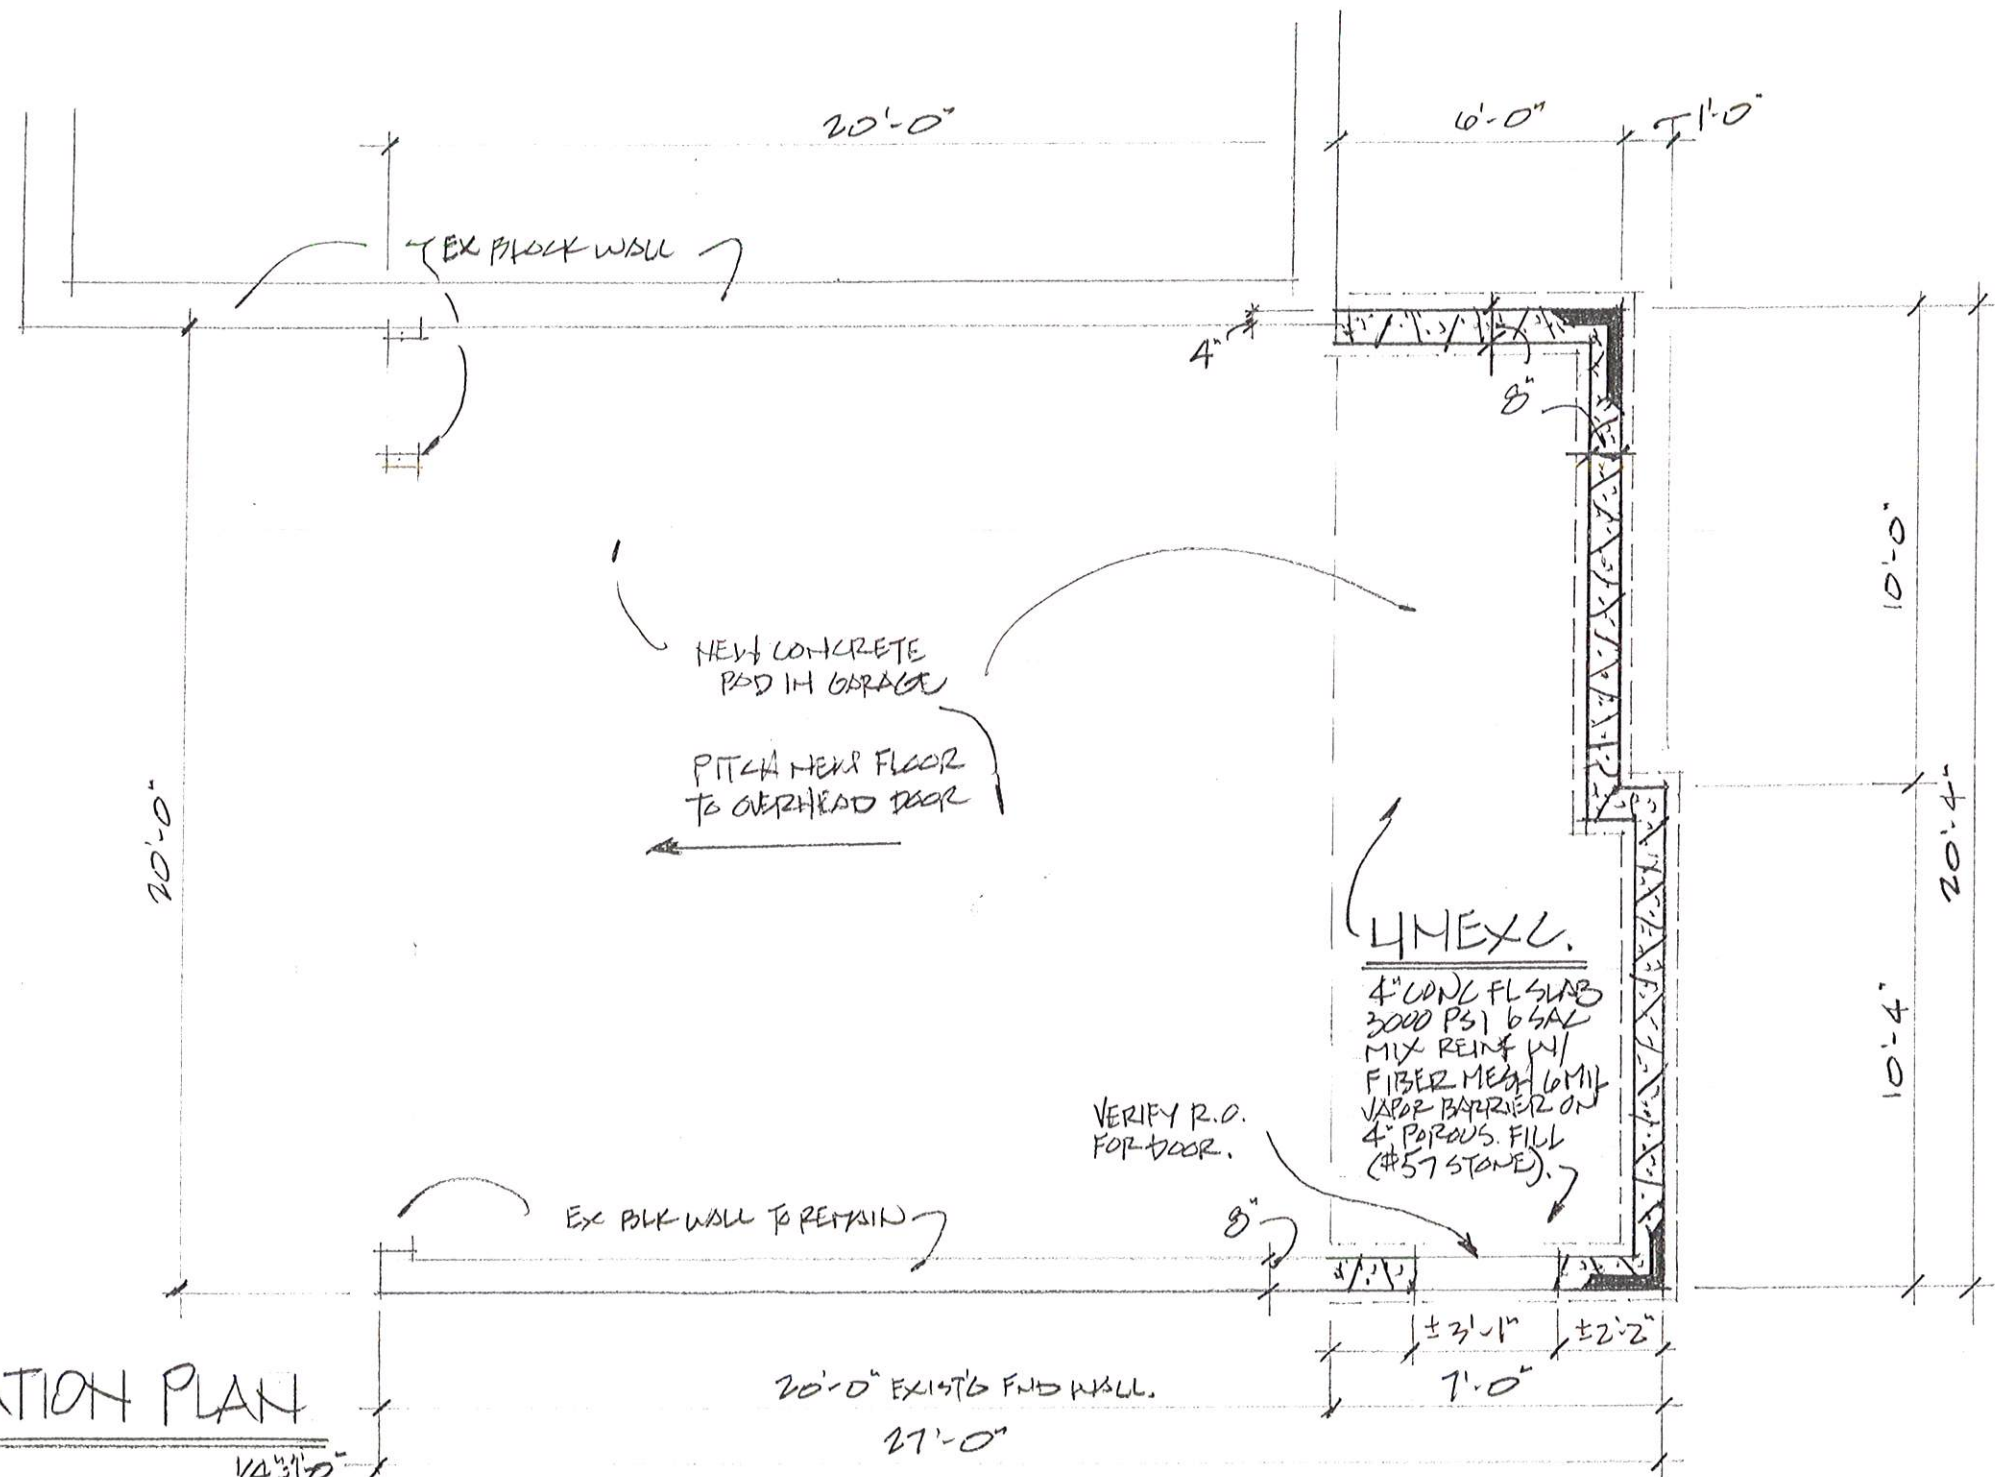 20'-0"
6'-0"
1'-0"
EX BLOCK WALL
4"
8"
10'-0"
NEW CONCRETE
PAD IN GARAGE
PITCH NEW FLOOR
TO OVERHEAD DOOR
20'-0"
20'-4"
UNEXC.
4" CONC FL SLAB
3000 PSI 6 SAC
MIX REINF W/
FIBER MESH 6 MIL
VAPOR BARRIER ON
4" POROUS FILL
(#57 STONE).
10'-4"
VERIFY R.O.
FOR DOOR.
EX BLK WALL TO REMAIN
8"
±3'-1"
±2'-2"
20'-0" EXIST'G FND WALL.
7'-0"
27'-0"
ATION PLAN
1/4"=1'-0"